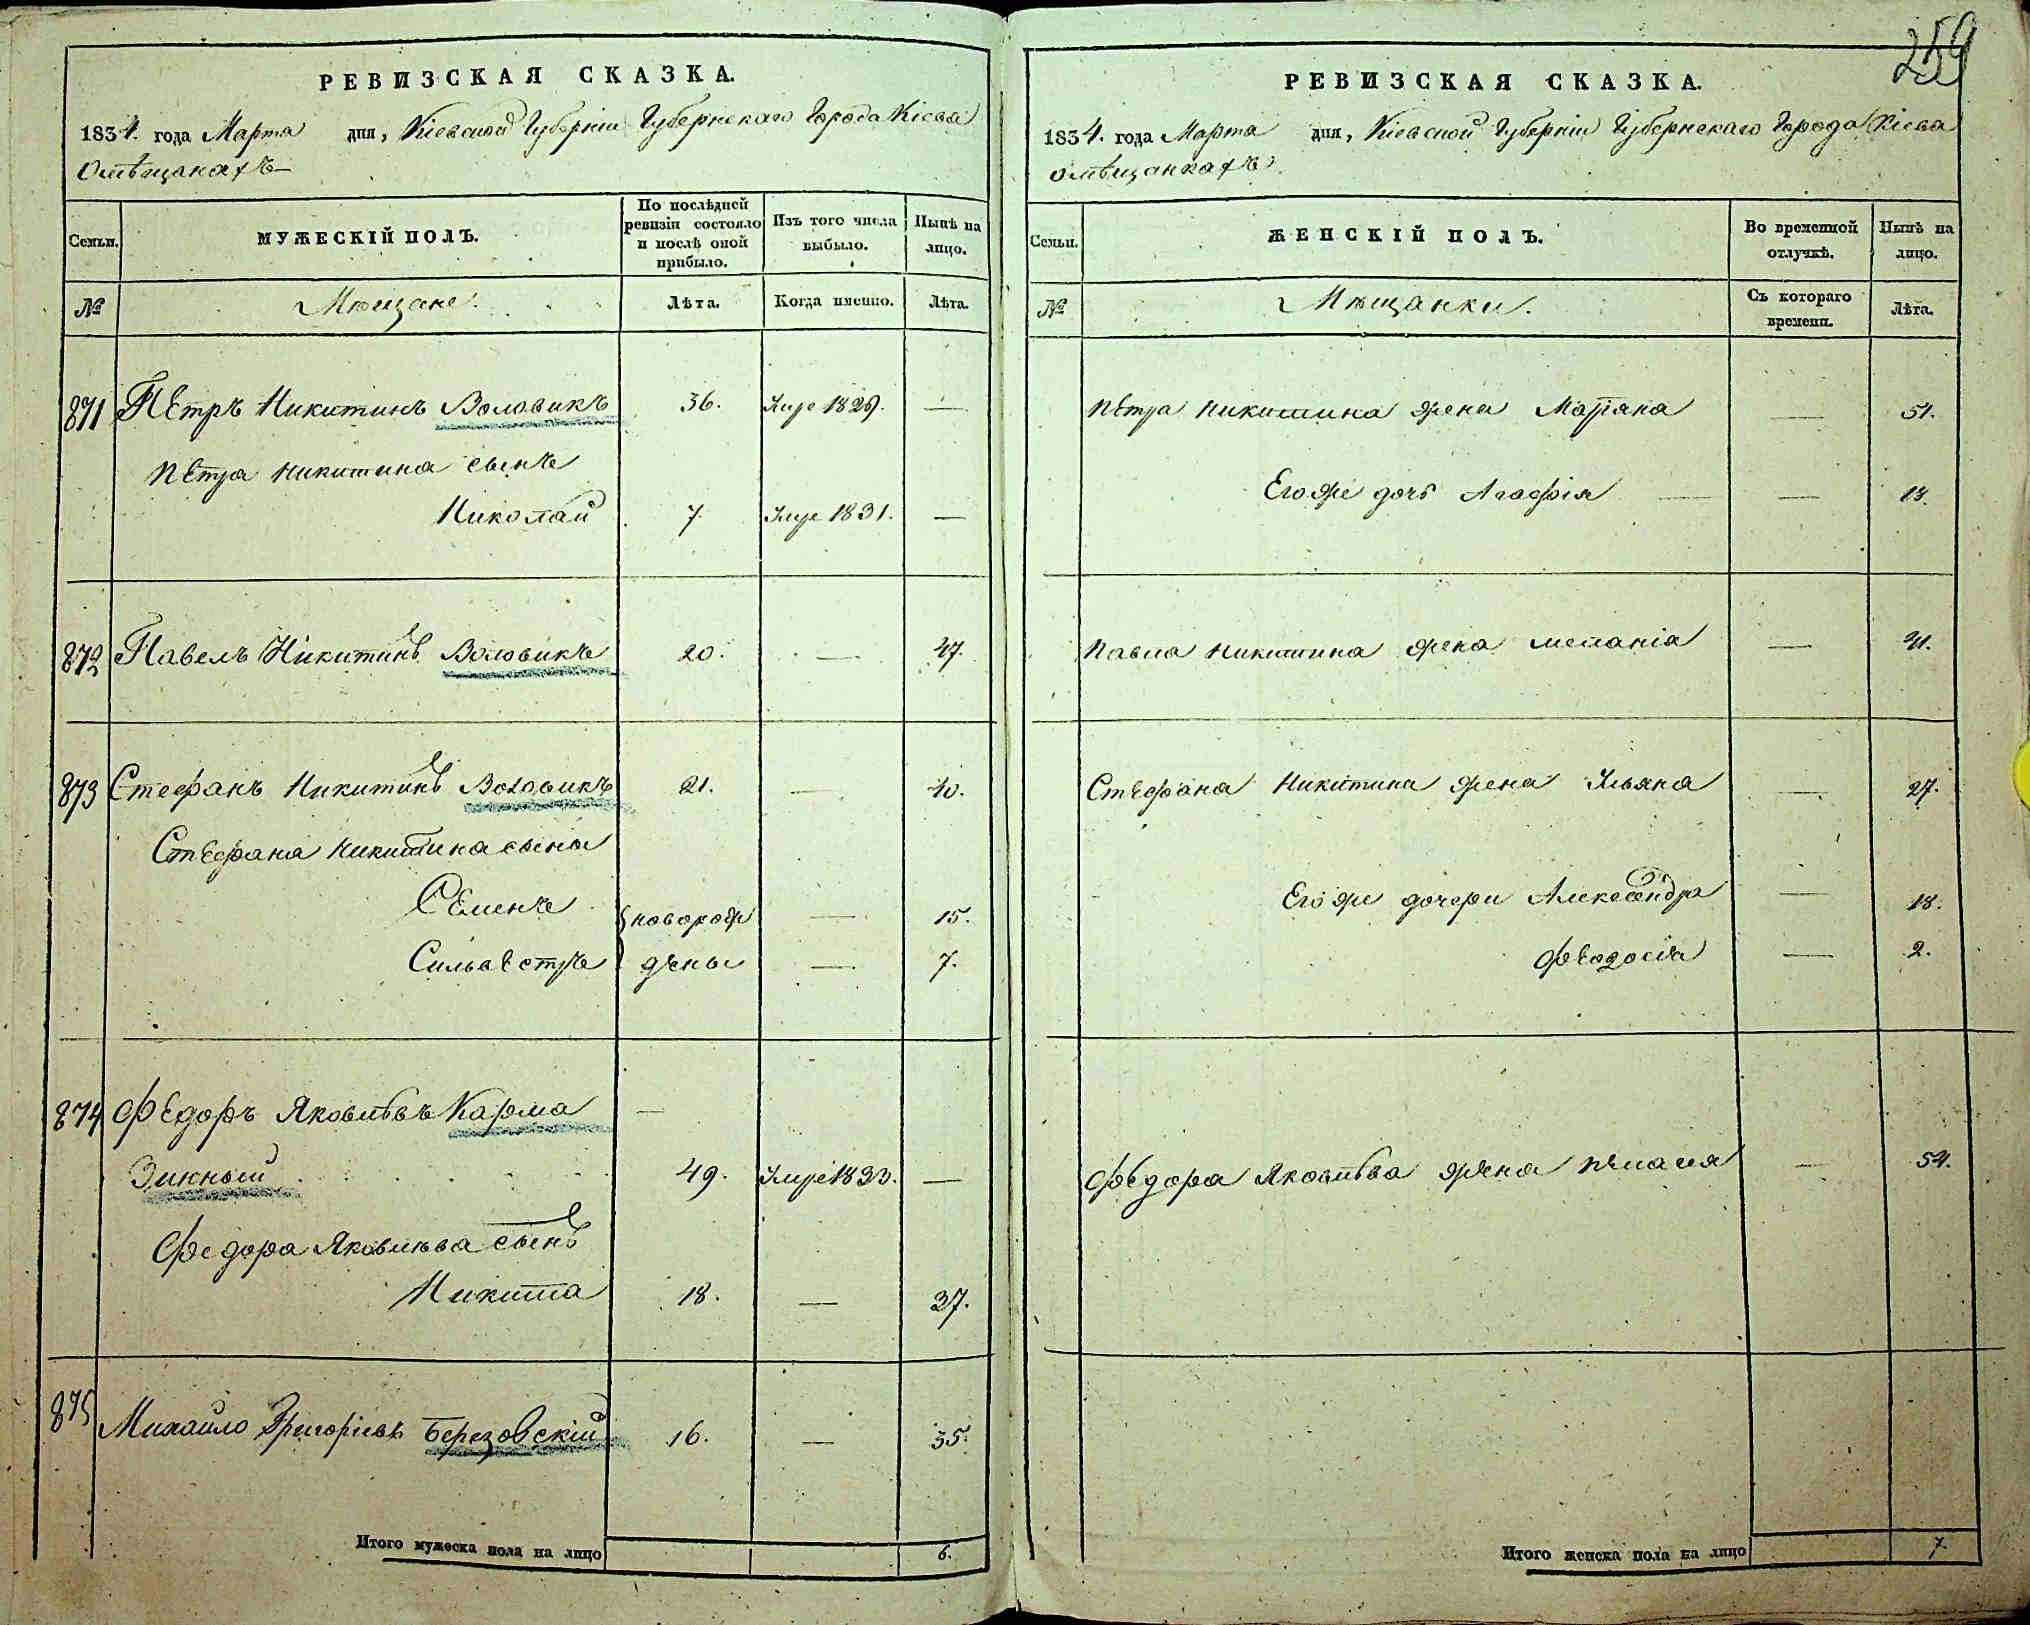 259
РЕВИЗСКАЯ СКАЗКА.
1834. года Марта дня, Кіевской Губерніи Губернскаго Города Кіева
о мѣщанахъ
Семьи.
МУЖЕСКІЙ ПОЛЪ.
По послѣдней ревизіи состояло и послѣ оной прибыло.
Изъ того числа выбыло.
Нынѣ на лицо.
№
Мѣщане.
Лѣта.
Когда имянно.
Лѣта.
871 Петръ Никитинъ Воловикъ 36. Умре 1829. —
Петра Никитина сынъ
Николай 7. Умре 1831. —
872 Павелъ Никитинъ Воловикъ 20. — 47.
873 Стефанъ Никитинъ Воловикъ 21. — 40.
Стефана Никитина сыны
Семенъ новорож — 15.
Сильвестръ дены — 7.
874 Федоръ Яковлѣвъ Карма —
Зинный 49. Умре 1833. —
Федора Яковлѣва сынъ
Никита 18. — 37.
875 Михайло Григоріевъ Березовскій 16. — 35.
Итого мужеска пола на лицо 6.
РЕВИЗСКАЯ СКАЗКА.
1834. года Марта дня, Кіевской Губерніи Губернскаго Города Кіева
о мѣщанкахъ
Семьи.
ЖЕНСКІЙ ПОЛЪ.
Во временной отлучкѣ.
Нынѣ на лицо.
№
Мѣщанки.
Съ котораго времени.
Лѣта.
Петра Никитина жена Маріяна — 51.
Его же дочь Агафія — 13.
Павла Никитина жена Меланія — 41.
Стефана Никитина жена Ульяна — 27.
Его же дочери Александра — 18.
Феодосія — 2.
Федора Яковлѣва жена Пелагея — 54.
Итого женска пола на лицо 7.